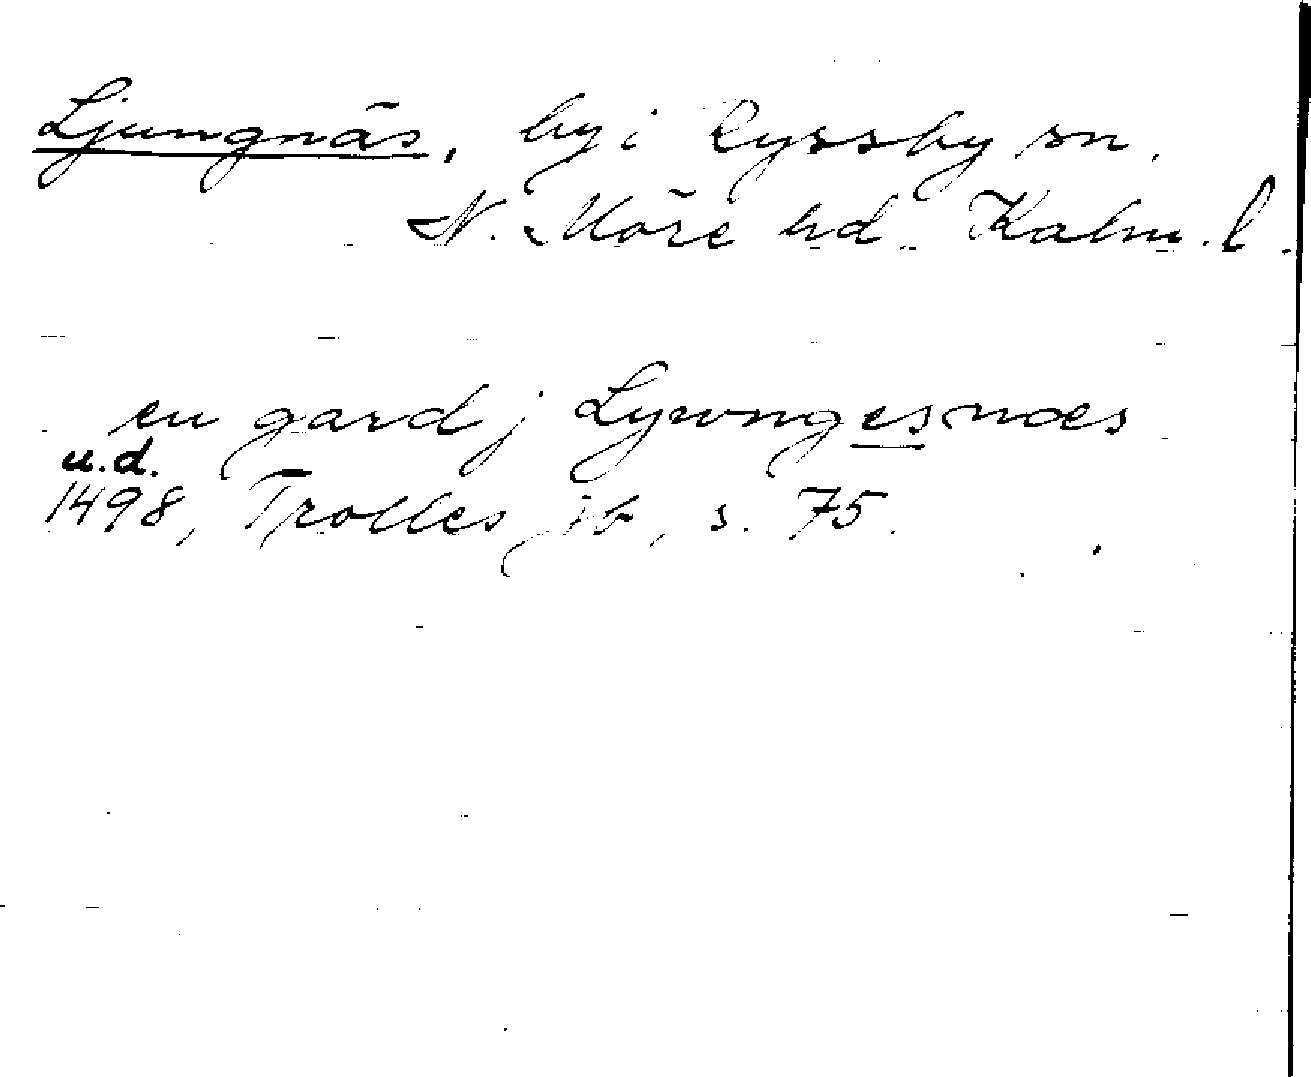 Ljungnäs, by i Ryssby sn.
N. Möre hd Kalm. l.
en gard j Lywngesnæs
u.d.
1498, Trolles jb, s. 75.